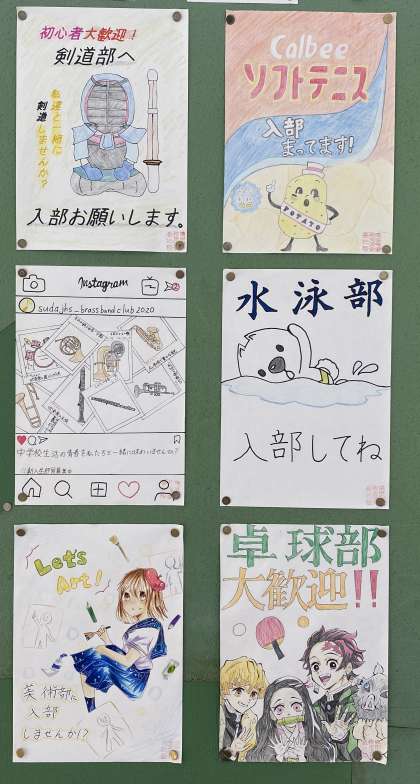 初心者大歓迎!
剣道部へ
私達と一緒に
剣道しませんか?
入部お願いします。
Calbee
ソフトテニス
入部
まってます!
POTATO
Instagram
suda.jhs_brassbandclub2020
中学校生活の青春を私たちと一緒に味わいませんか?
水泳部
入部してね
Let's
Art!
美術部に
入部
しませんか!?
卓球部
大歓迎!!